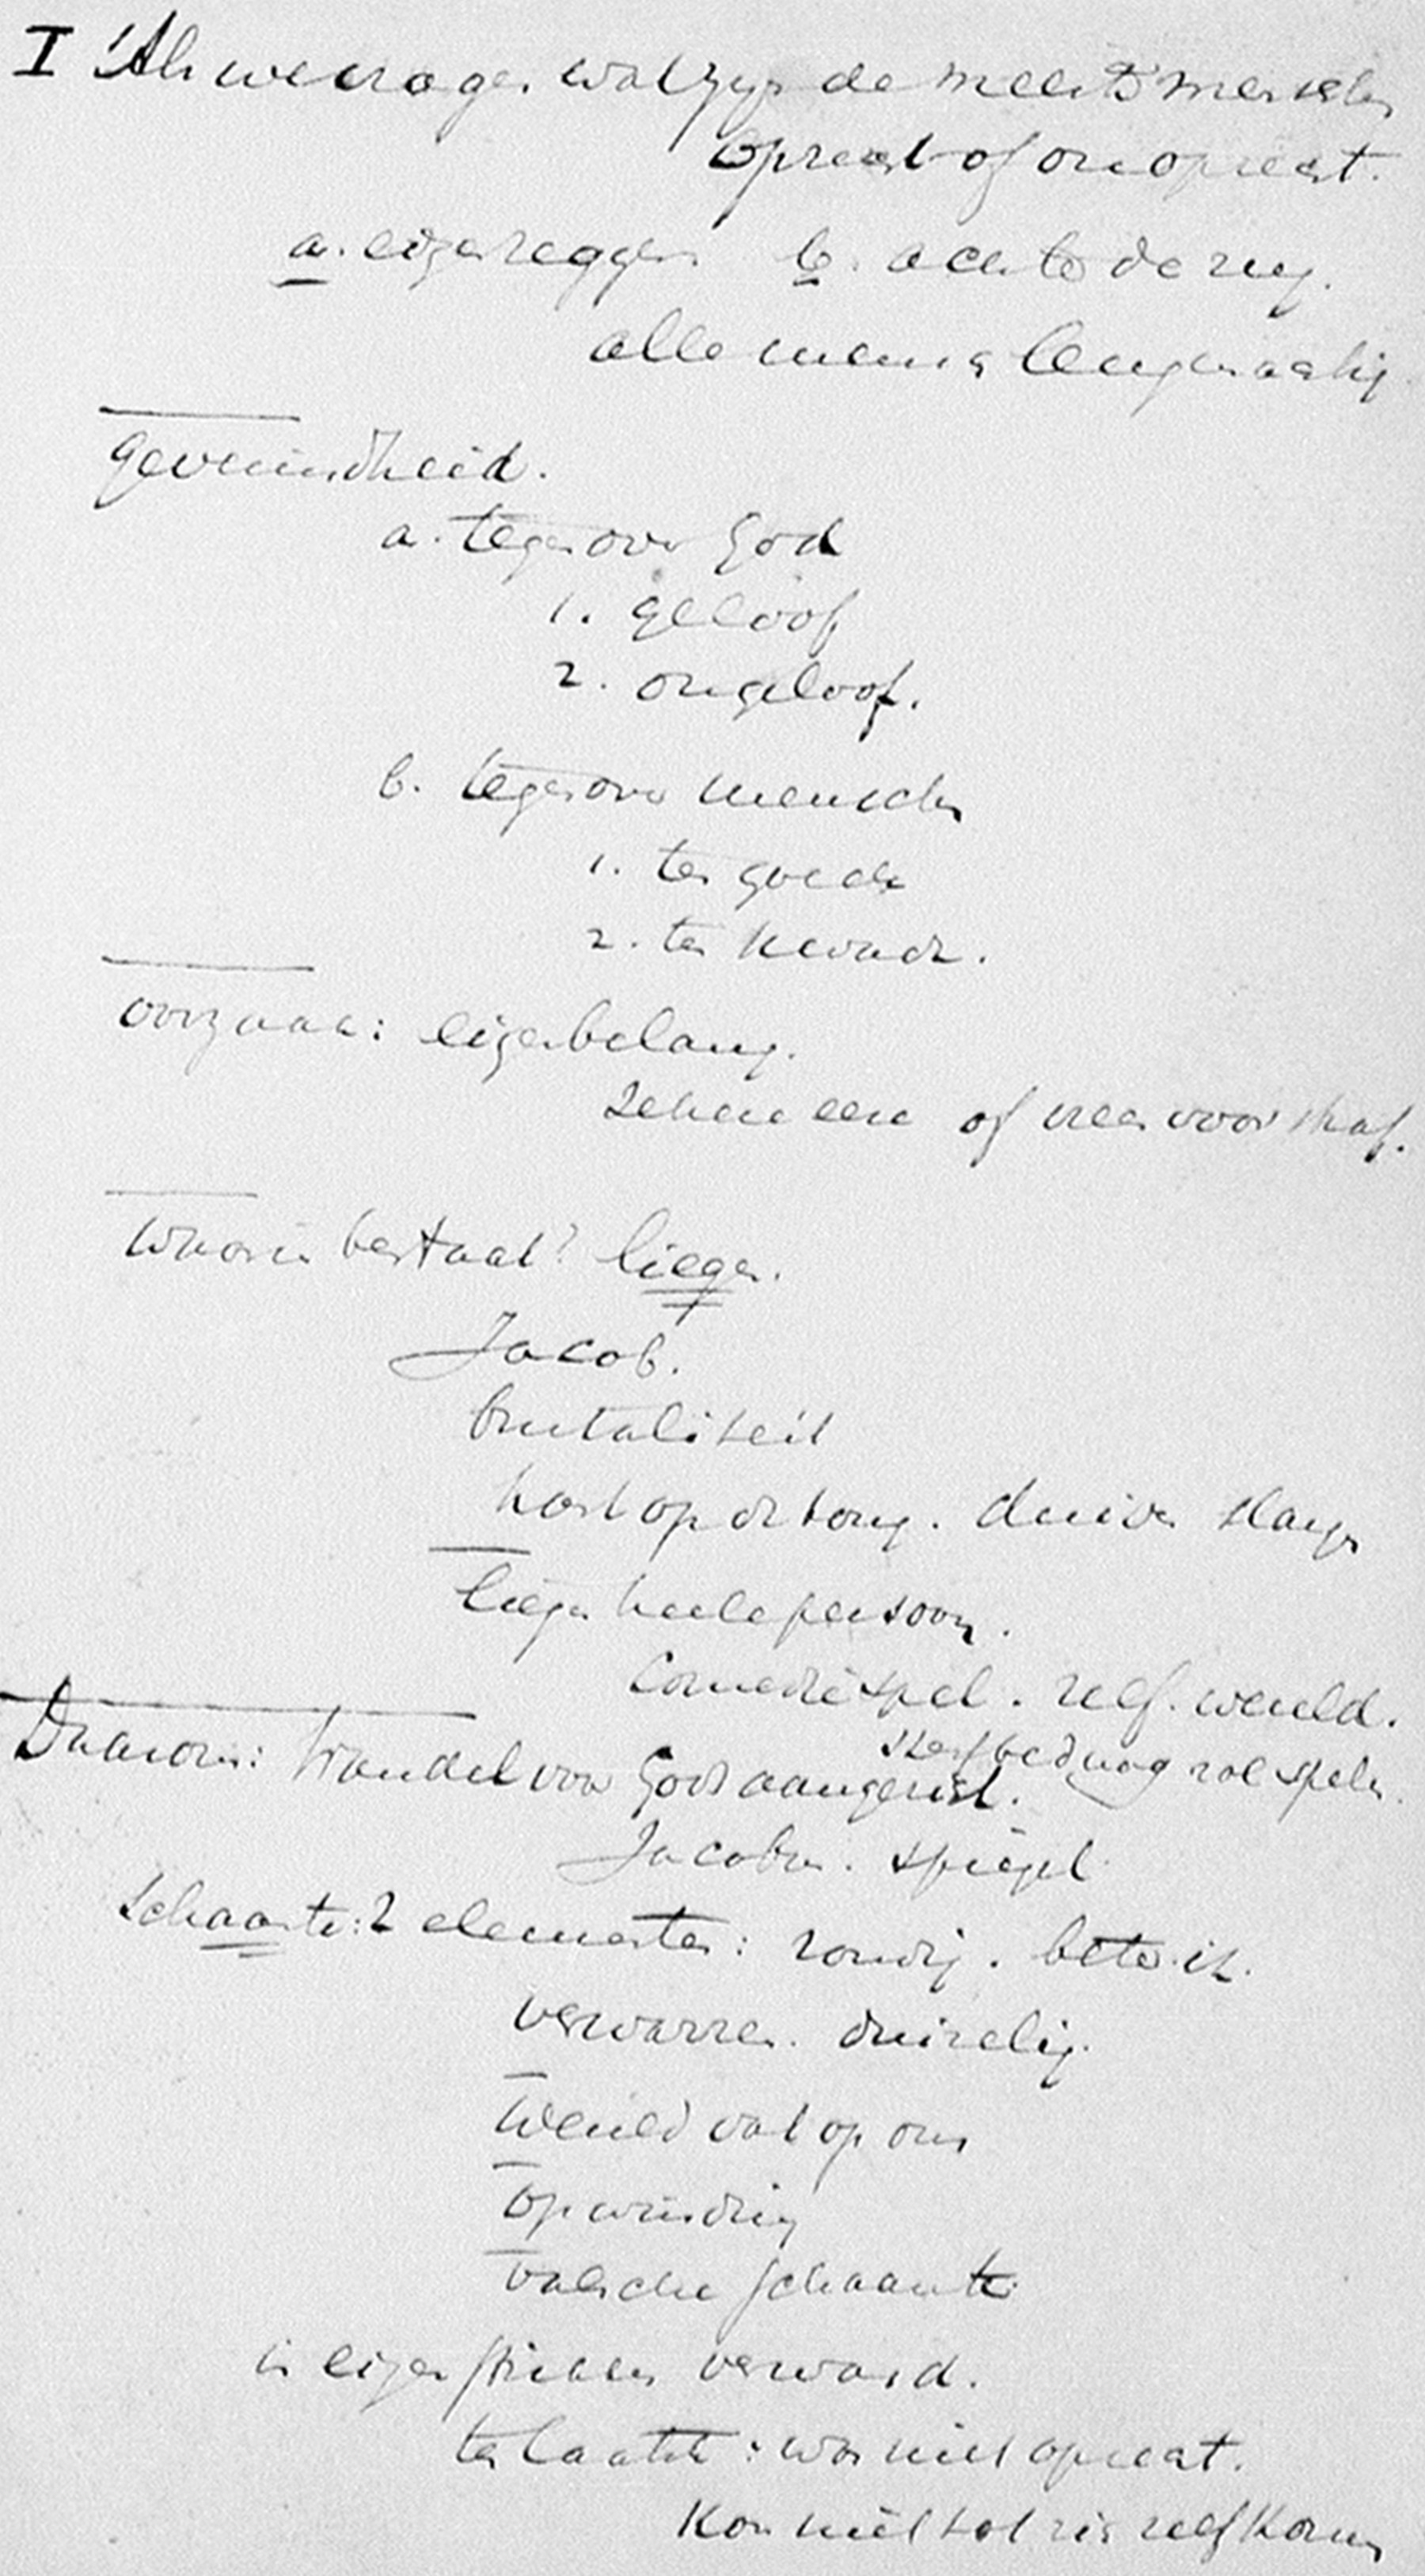 I Als we vragen wat zijn de meeste menschen
oprecht of onoprecht.
a. eigen zeggen b. achter de rug.
alle mensch leugenachtig
geveinsdheid.
a. tegenover God
1. geloof
2. ongeloof.
b. tegenover menschen
1. ten goede
2. ten kwade.
oorzaak: eigenbelang.
of vrees voor straf.
Waarin bestaat? liegen.
Jacob.
brutaliteit
hart op de tong. duiven slangen
liegen heele persoon.
Comediespel. zelf. wereld.
sterfbed nog rol spelen.
Daarom: Wandel voor Gods aangezicht.
Jacobus. spiegel
Schaamte: 2 elementen: zondig. beter ik.
verwarren. duizelig.
Wereld valt op ons
Opwinding
valsche schaamte
in eigen strikken verward.
ten laatste: was niet oprecht.
Kon niet tot zich zelf komen